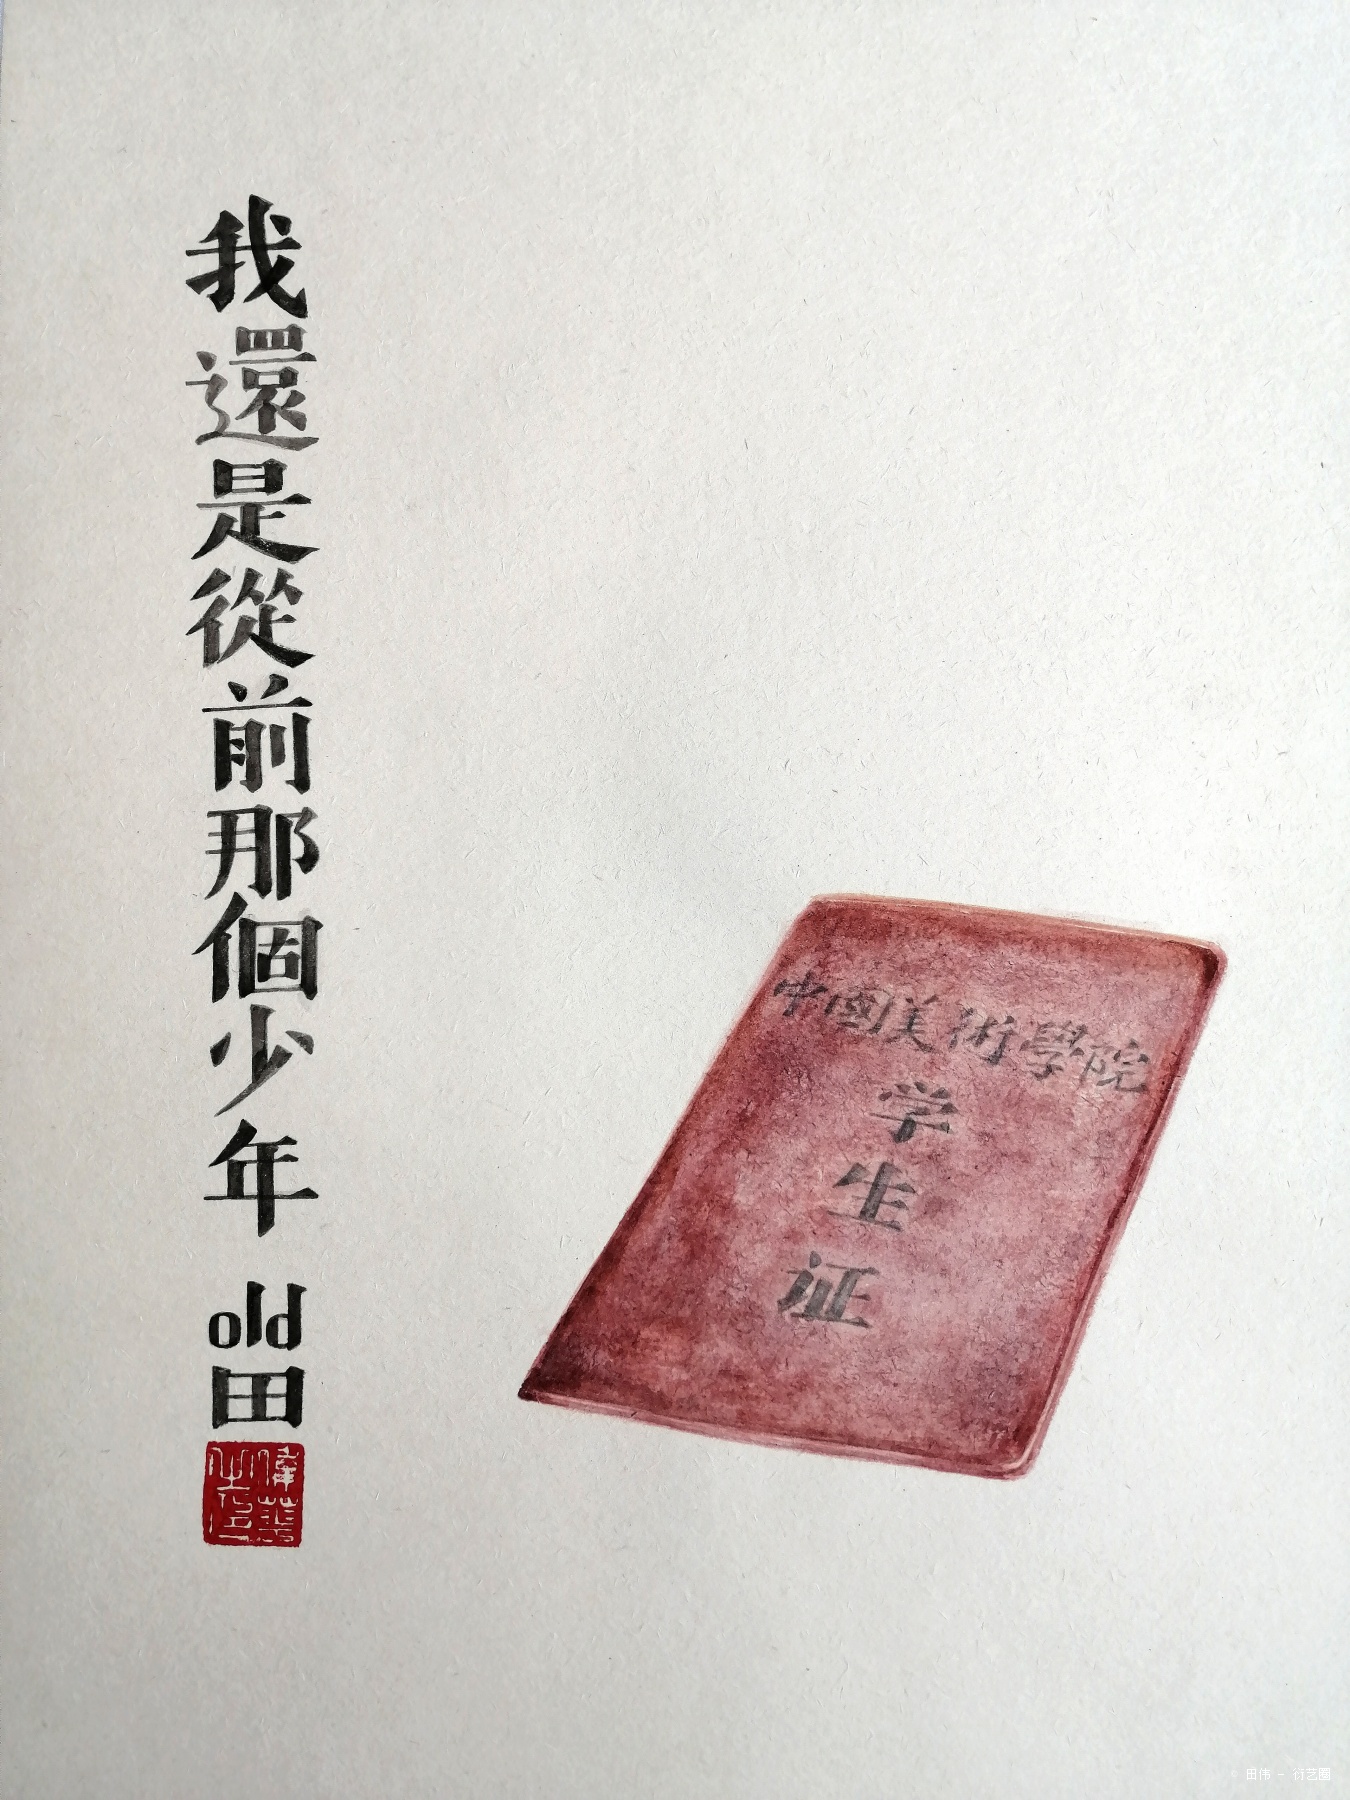 我還是從前那個少年
old
田
中國美術學院
学
生
证
田伟 - 衍艺圈